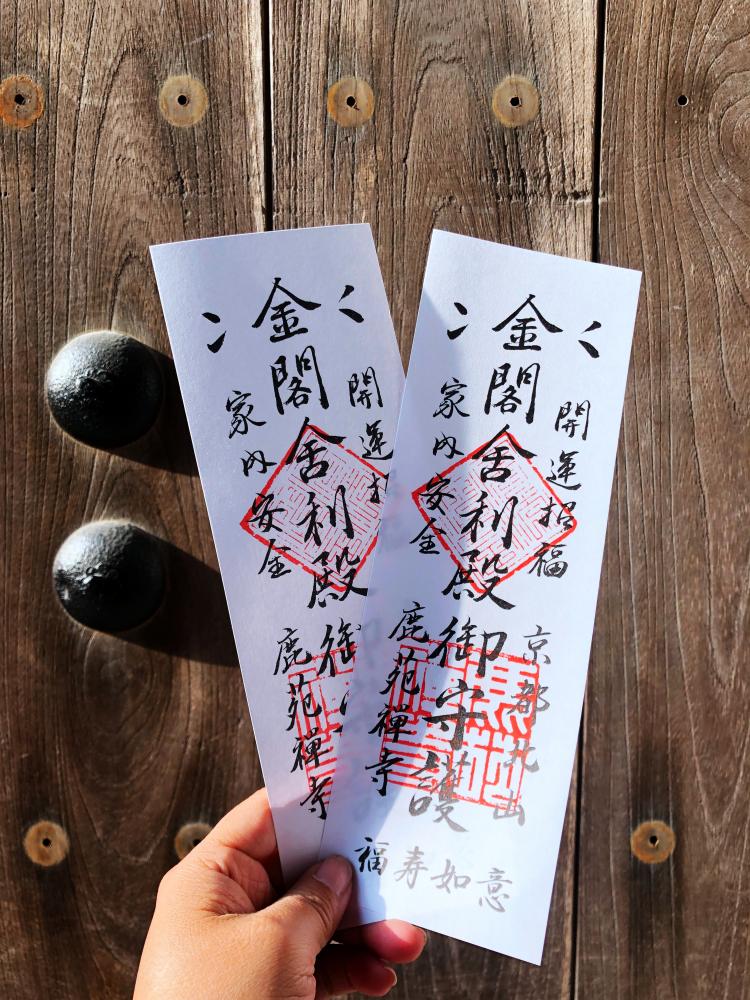 開運招福
京都北山
金閣舎利殿御守護
家内安全
鹿苑禪寺
福寿如意
開運
金閣舎利殿御
家内安全
鹿苑禪寺